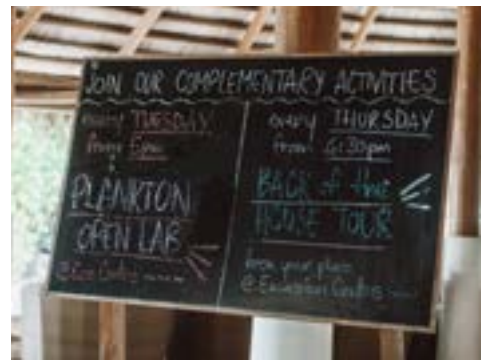 JOIN OUR COMPLEMENTARY ACTIVITIES
every TUESDAY
from 5pm
PLANKTON
OPEN LAB
@ Eco Centre
every THURSDAY
from 6:30pm
BACK of the
HOUSE TOUR
your place
@ Excursion